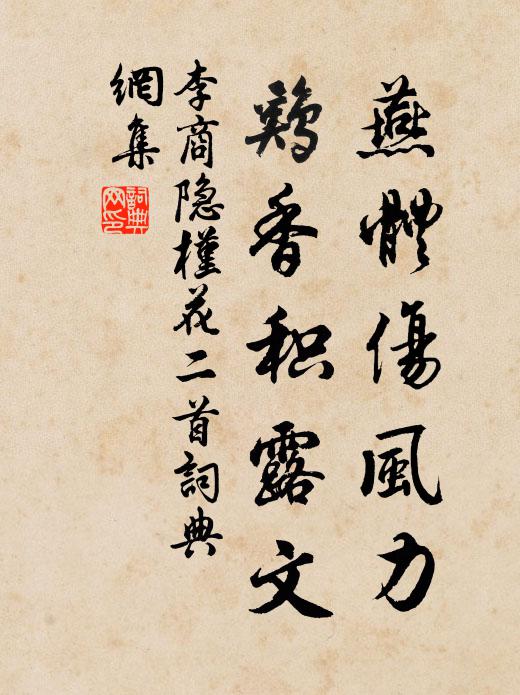 燕體傷風力
鷄香积露文
李商隐槿花二首詞典
網集
詞典
网印